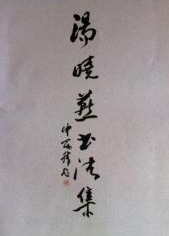 湯曉燕书法集